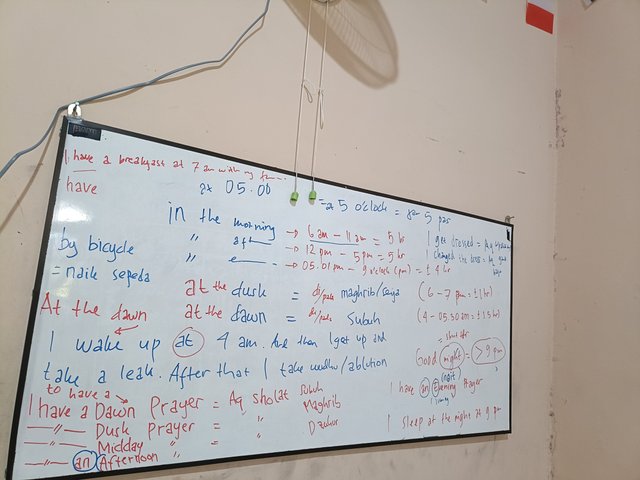 I have a breakfast at 7 am with my
have
05.00
= at 5 o'clock = 5 pas
in the morning → 6 am - 11 am = 5 hr
" aft → 12 pm - 5 pm = 5 hr
" e → 05.01 pm - 9 o'clock (pm) = ± 4 hr
I get dressed =
I changed the
by bicycle
= naik sepeda
at the dusk = maghrib/senja (6 - 7 pm = ± 1 hr)
At the dawn
at the dawn = Subuh (4 - 05.30 am = ± 1.5 hr)
I wake up at 4 am. And then I get up and
take a leak. After that I take wudhu/ablution
Good night = > 9 pm
to have a
I have a Dawn Prayer = Aq sholat Subuh
—"— Dusk prayer = " Maghrib
—"— Midday " = " Dzuhur
—"— an Afternoon "
I have an Evening Prayer
I sleep at the night at 9 pm